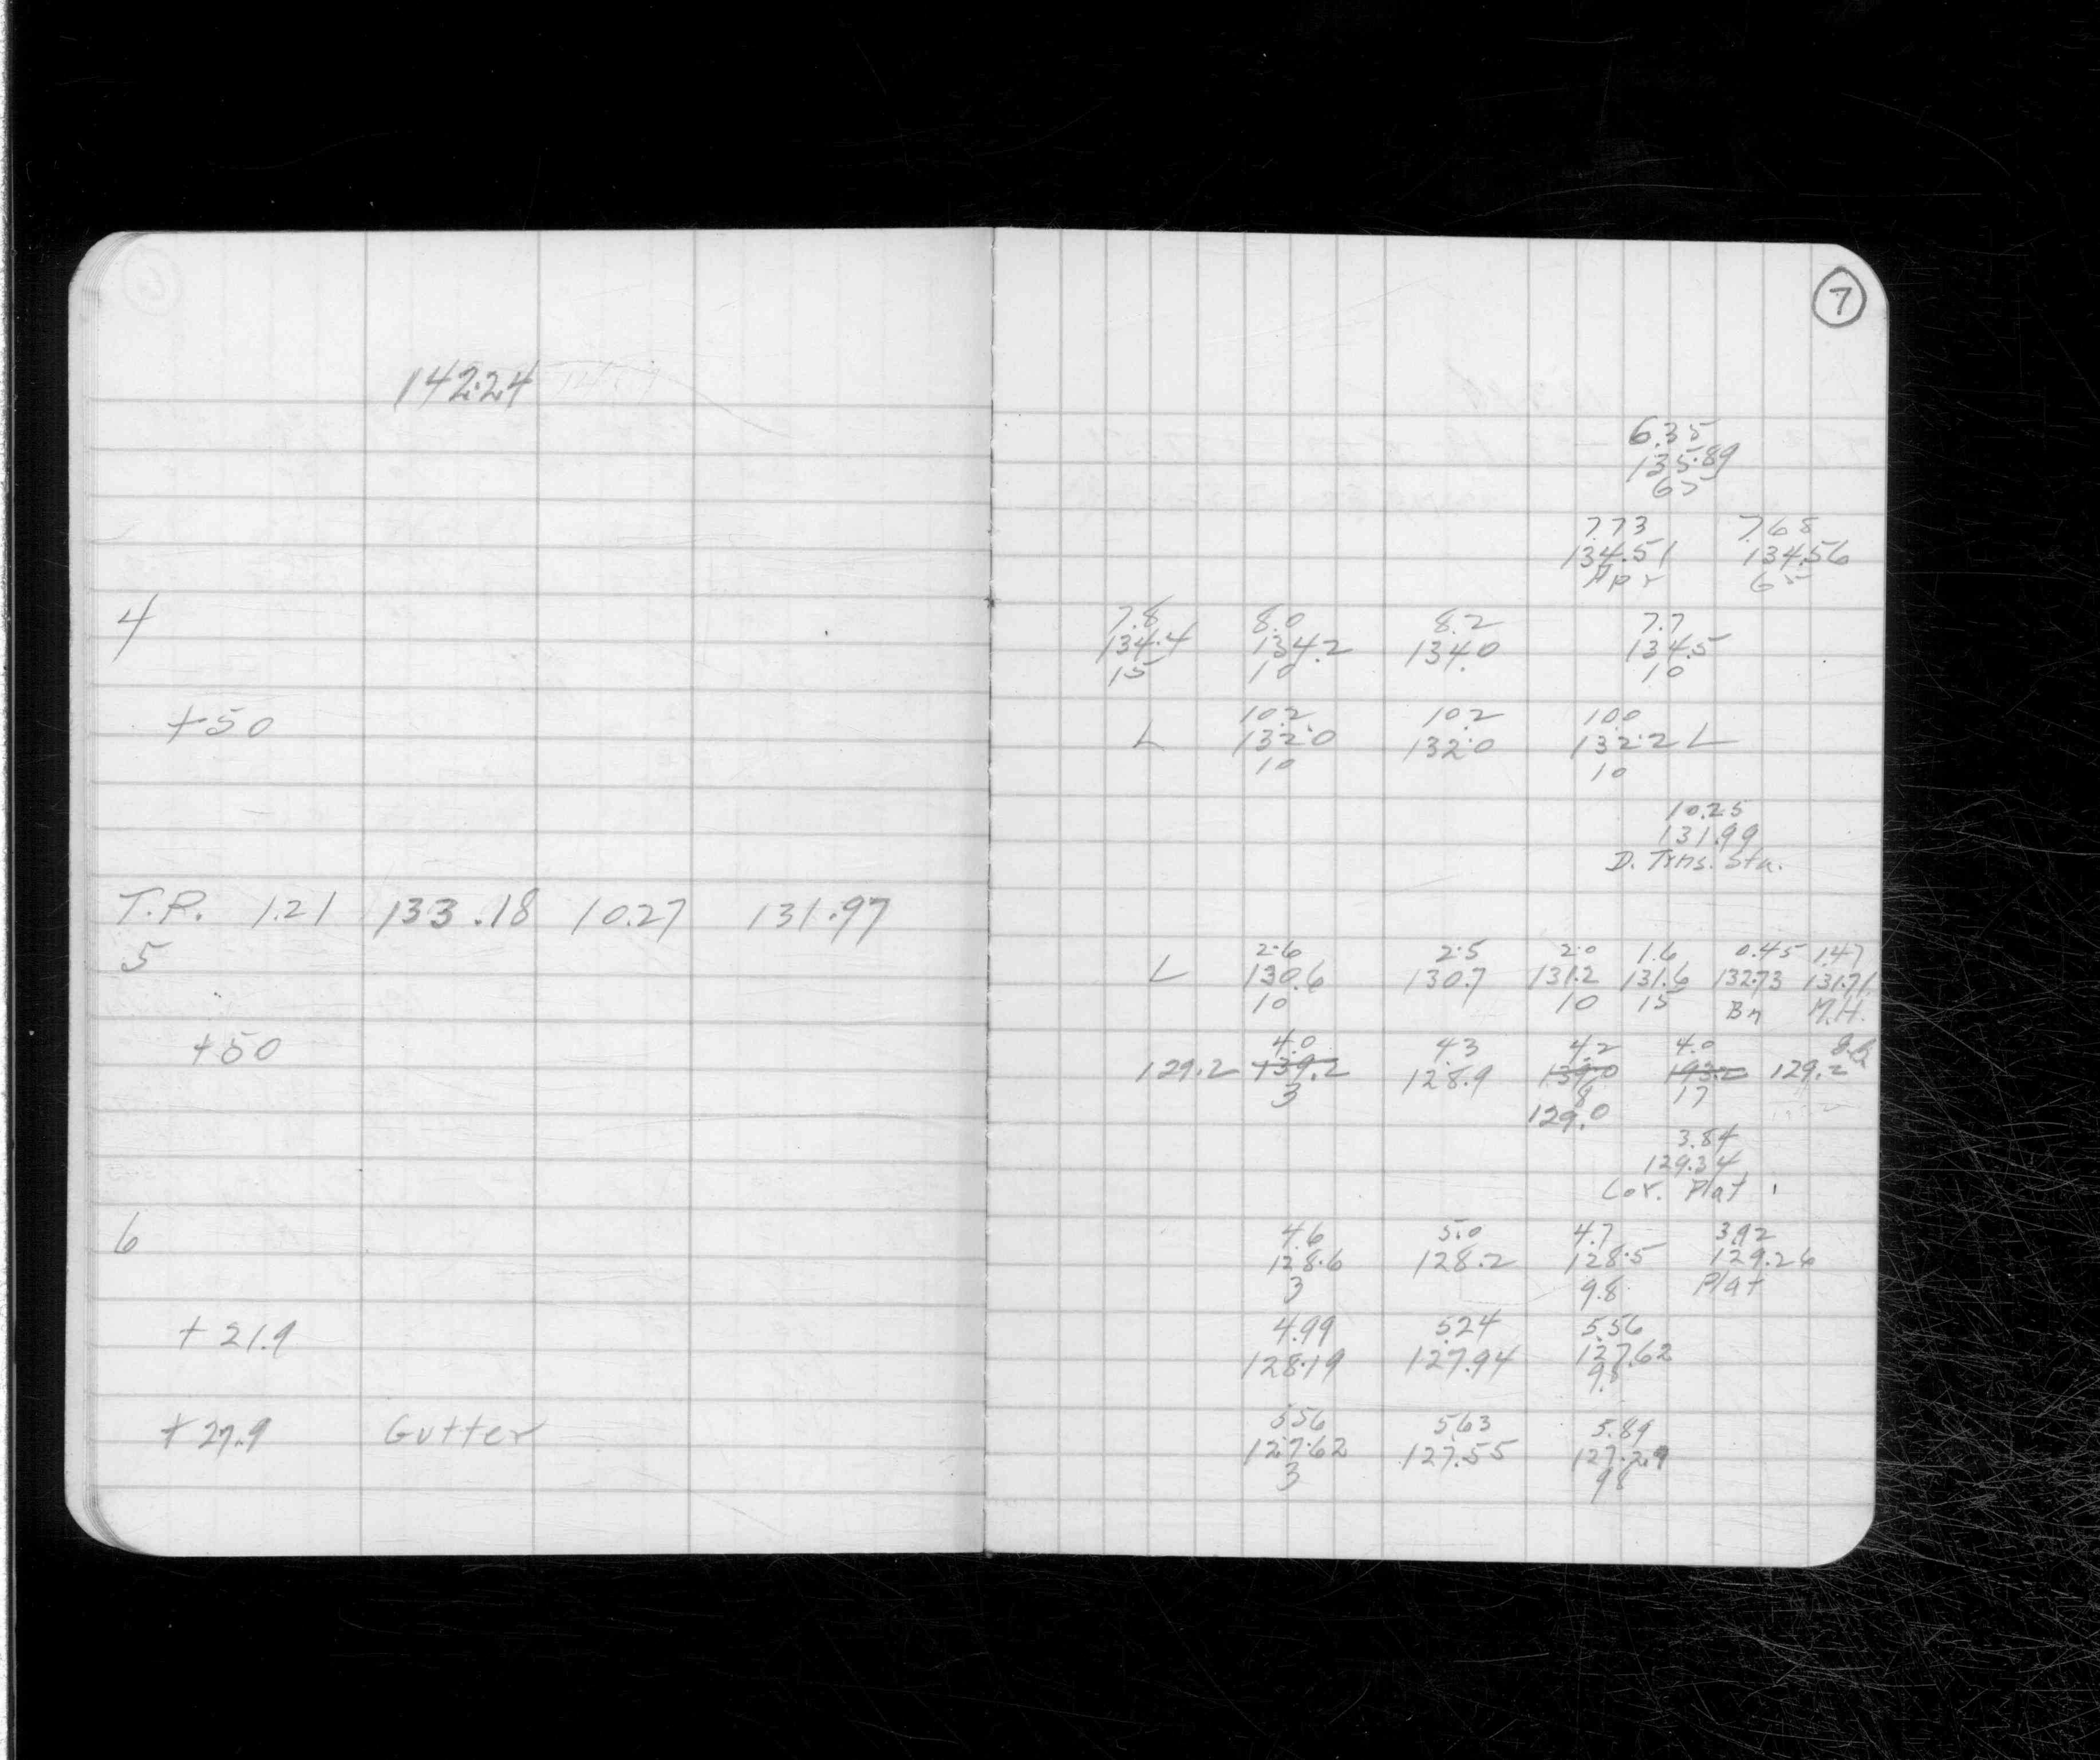 7
142.24
6.35
135.89
65
7.73 7.68
134.51 134.56
Apr 65
4 7.8 8.0 8.2 7.7
134.4 134.2 134.0 134.5
15 10 10
+50 10.2 10.2 10.0
L 132.0 132.0 132.2 L
10 10
10.25
131.99
D. Trns. Sta.
T.P. 1.21 133.18 10.27 131.97
5 2.6 2.5 2.0 1.6 0.45 1.47
L 130.6 130.7 131.2 131.6 132.73 131.71
10 10 15 Bn M.H.
+50 4.0 4.3 4.2 4.0
129.2 139.2 128.9 139.0 193.2 129.2
3 8 17
129.0
3.84
129.34
Cor. Plat
6 4.6 5.0 4.7 3.92
128.6 128.2 128.5 129.26
3 9.8 Plat
+21.9 4.99 5.24 5.56
128.19 127.94 127.62
9.8
+27.9 Gutter 5.56 5.63 5.89
127.62 127.55 127.29
3 98